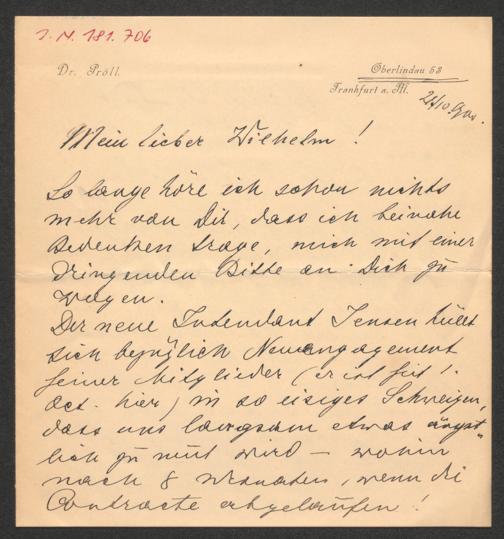 I. N. 181.706
Dr. Pröll.
Oberlindau 53
Frankfurt a. M.
Mein lieber Wilhelm!
So lange höre ich schon nichts
mehr von Dir, dass ich beinahe
Bedenken trage, mich mit einer
dringenden Bitte an Dich zu
wagen.
Der neue Intendant Jensen hüllt
sich bezüglich Neuengagement
seiner Mitglieder (er ist seit 1.
Oct. hier) in so eisiges Schweigen,
dass uns langsam etwas ängst-
lich zu mut wird — wohin
nach 8 Monaten, wenn die
Contracte abgelaufen!